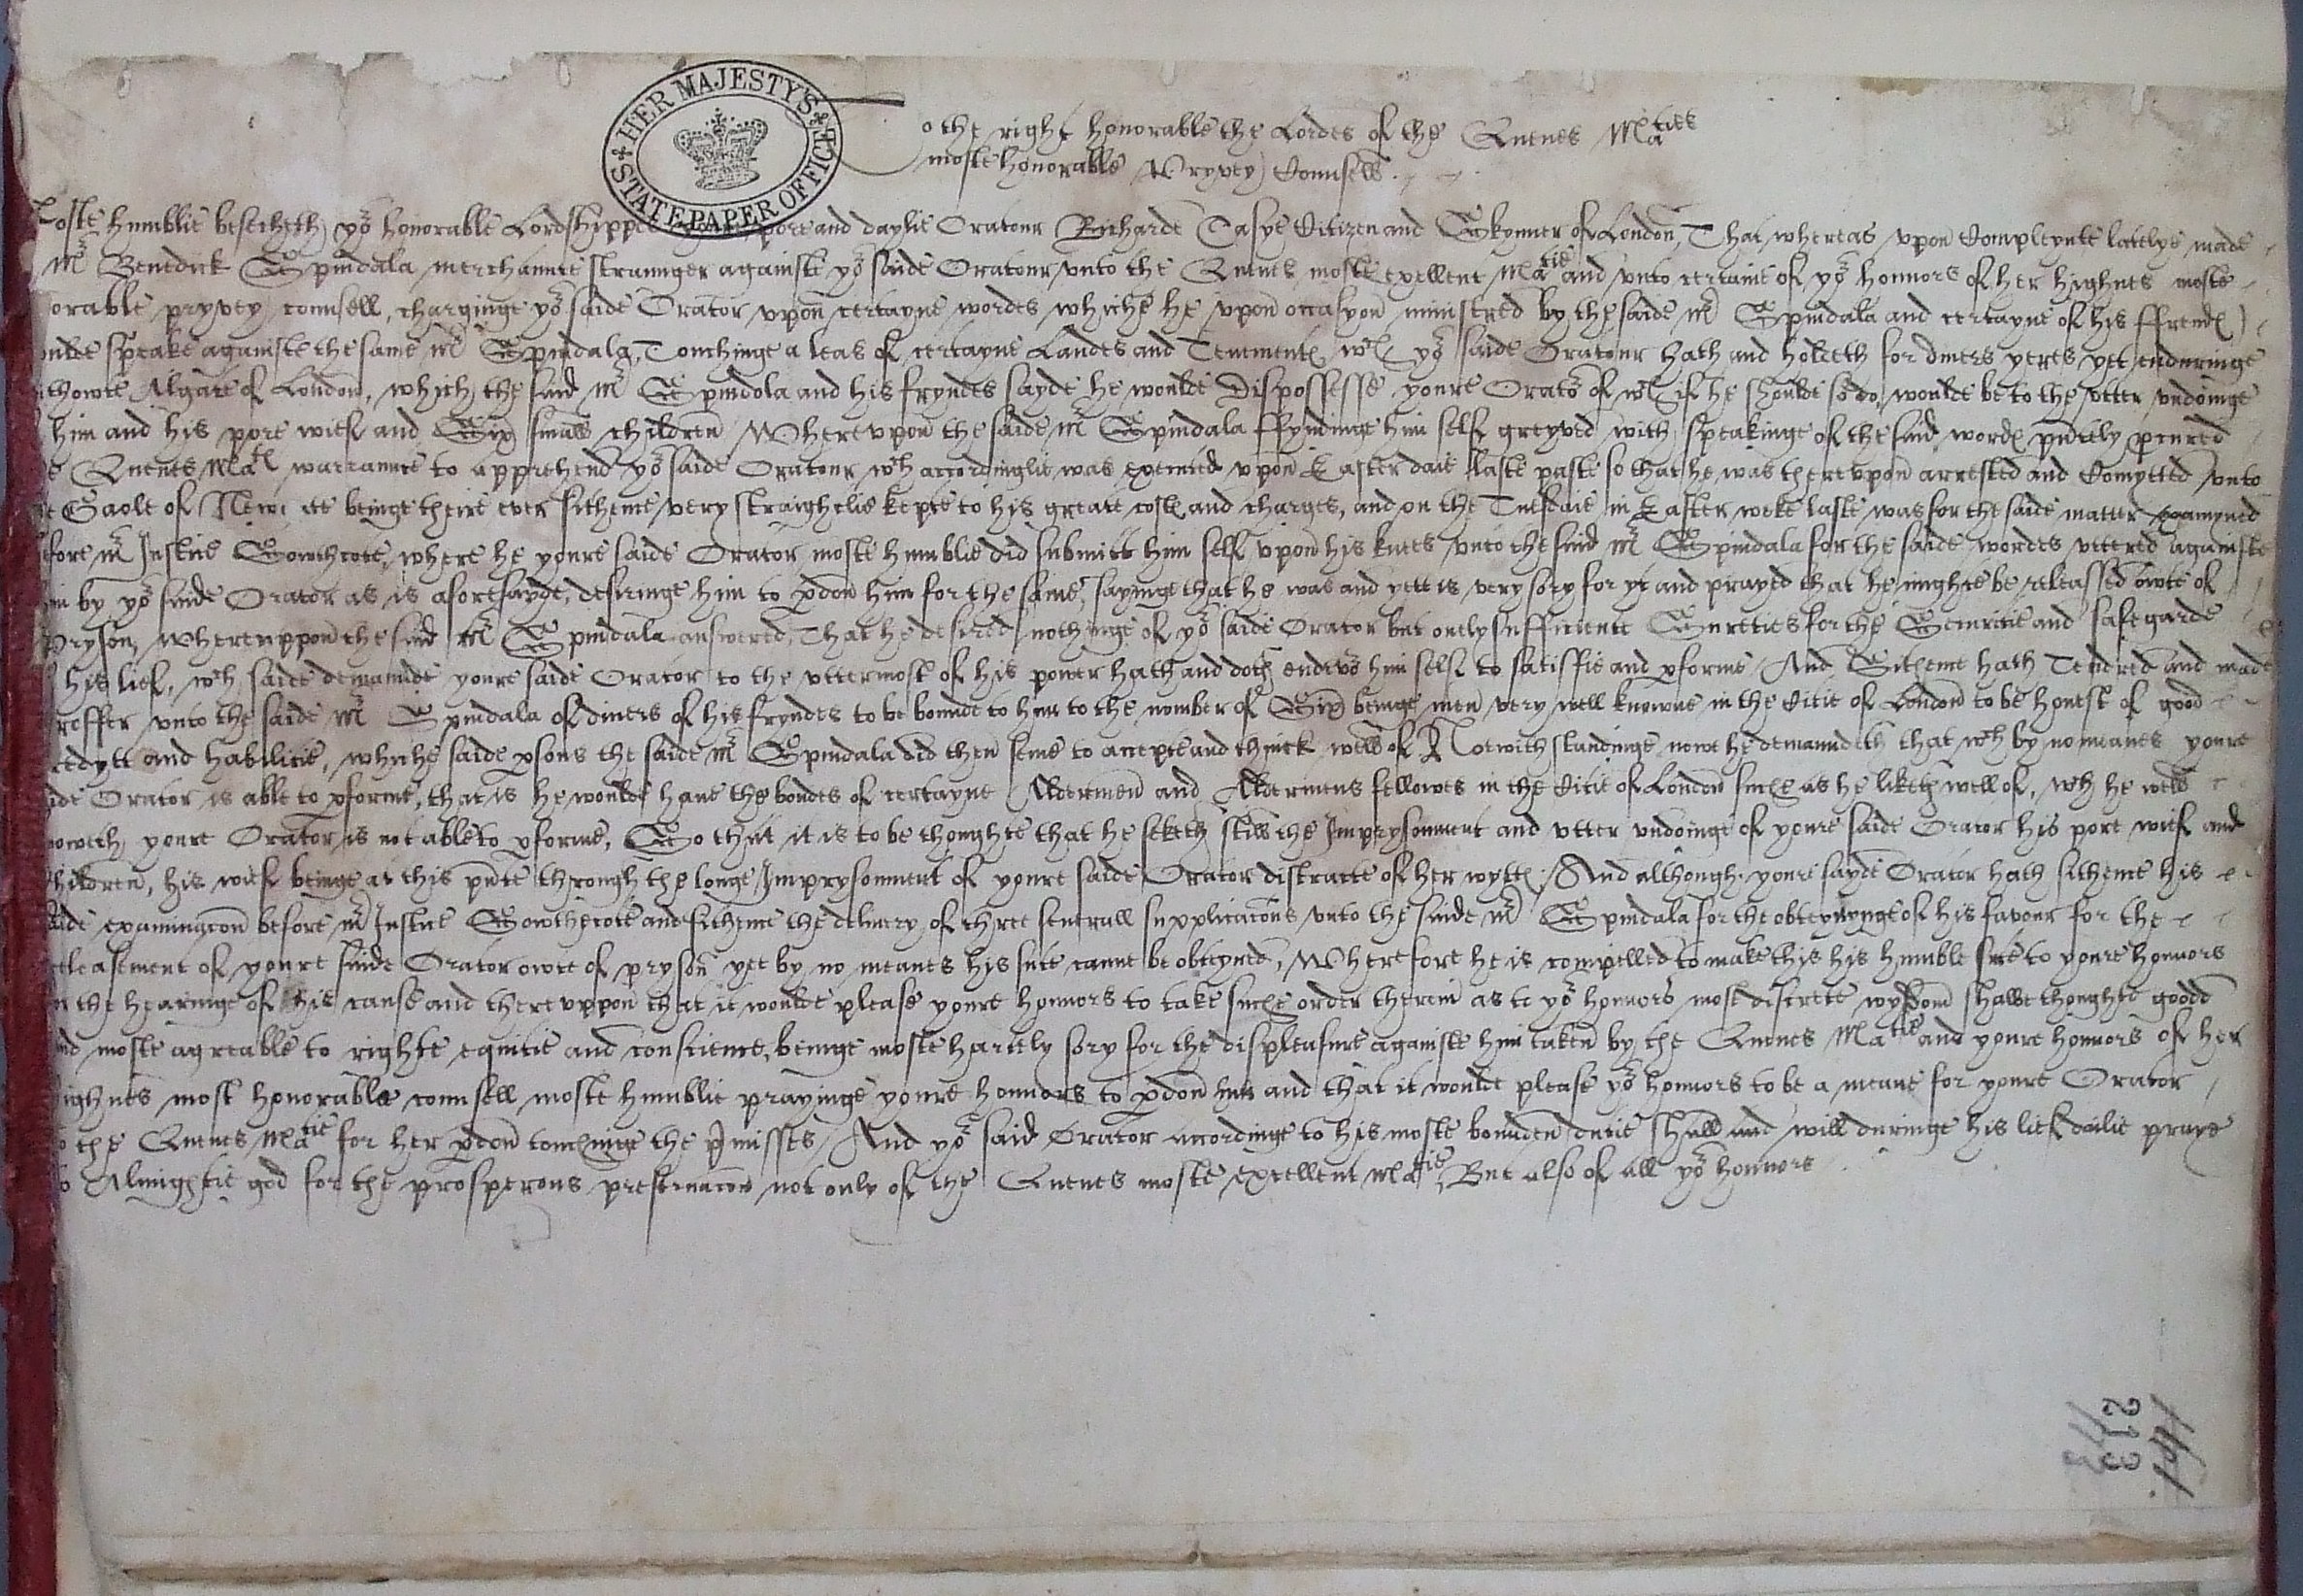 HER MAJESTY'S STATE PAPER OFFICE
o the right honorable the Lordes of the Quenes Maties
moste honorable Pryvey Counsell
oste humblie besecheth yor honorable Lordshippes pore and daylie Oratour Richarde Casye Citizen and Skynner of London, That whereas vpon Compleynte latelye made
Mr Benedick Spindala merchaunte straunger againste yor saide Oratour vnto the Quenes moste exellent Matie and vnto certaine of yor honnors of her highnes moste
orable pryvey counsell, charginge yor saide Orator vpon certayne wordes whiche he vpon occasyon ministred by the saide Mr Spindala and certayne of his ffrendes
speake againste the same Mr Spindala, Touchinge a leas of certayne Landes and Tenementes wch yor saide Oratour hath and holdeth for divers yeres yet enduringe
thowte Algate of London, which the said Mr Spindola and his fryndes sayde he woulde Dispossesse youre Orator of wch if he shoulde so do, woulde be to the vtter vndoinge
him and his pore wief and Six smale children Wherevpon the saide Mr Spindala ffyndinge him self greyved with speakinge of the said wordes pntely penred
Quenes Mates warraunte to apprehend yor saide Oratour wch accordinglie was executed vpon Easter daie laste paste so that he was therevpon arrested and Comytted vnto
Gaole of New te beinge theire ever sithence very straightelie kepte to his greate costes and charges, and on the Tuesdaie in Easter weke laste was for the saide matter examyned
fore Mr Justice Sowthcote, where he youre saide Orator moste humblie did submitt him self vpon his knees vnto the said Mr Spindala for the saide wordes vttered againste
by yor saide Orator as is aforesayde, desiringe him to pdon him for the same, sayinge that he was and yett is very sory for yt and prayed that he mighte be releassed owte of
Pryson, Wherevppon the said Mr Spindala answered, That he desired nothinge of yor saide Orator but onely sufficiente Sureties for the Securitie and safegarde
his lief, wch saide demaunde youre saide Orator to the vttermost of his power hath and doth endevor him self to satisfie and pforme And Sithence hath Tendred and made
roffer vnto the saide Mr Spindala of divers of his fryndes to be bounde to him to the nomber of Six beinge men very well knowne in the Citie of London to be honest of good
redytt and habilitie, whiche saide psons the saide Mr Spindala did then seme to accepte and thinck well of Notwithstandinge nowe he demaundeth that wch by no meanes youre
ide Orator is able to pforme, that is he woulde have the bondes of certayne Aldermen and Aldermens fellowes in the Citie of London suche as he liketh well of, wch he well
oweth youre Orator is not able to pforme, So that it is to be thoughte that he seketh still the Imprysonment and vtter vndoinge of youre saide Orator his pore wief and
hildren, his wief beinge at this pnte through the longe Imprysonment of youre saide Orator distracte of her wyttes And although youre sayde Orator hath sithence his
aide examinacon before Mr Justice Sowthecote and sithence the delivery of three severall supplicacons vnto the saide Mr Spindala for the obteynynge of his favour for the
releasement of youre saide Orator owte of pryson yet by no meanes his sute canne be obteyned, Wherefore he is compelled to make this his humble sute to youre honnors
the hearinge of his cause and therevppon that it woulde please youre honnors to take suche order therein as to yor honnors most discrete wysdom shalbe thoughte goode
nd moste agreable to righte equitie and conscience, beinge moste hartely sory for the displeasure againste him taken by the Quenes Matie and youre honnors of her
ighnes most honorable counsell moste humblie prayinge youre honnors to pdon him and that it woulde please yor honnors to be a meane for youre Orator
o the Quenes Matie for her pdon touchinge the pmisses And yor said Orator accordinge to his moste bounden dutie shall and will duringe his lief dailie praye
o Almightie god for the prosperous preservacon not only of the Quenes moste exellent Matie, But also of all yor honnors
213